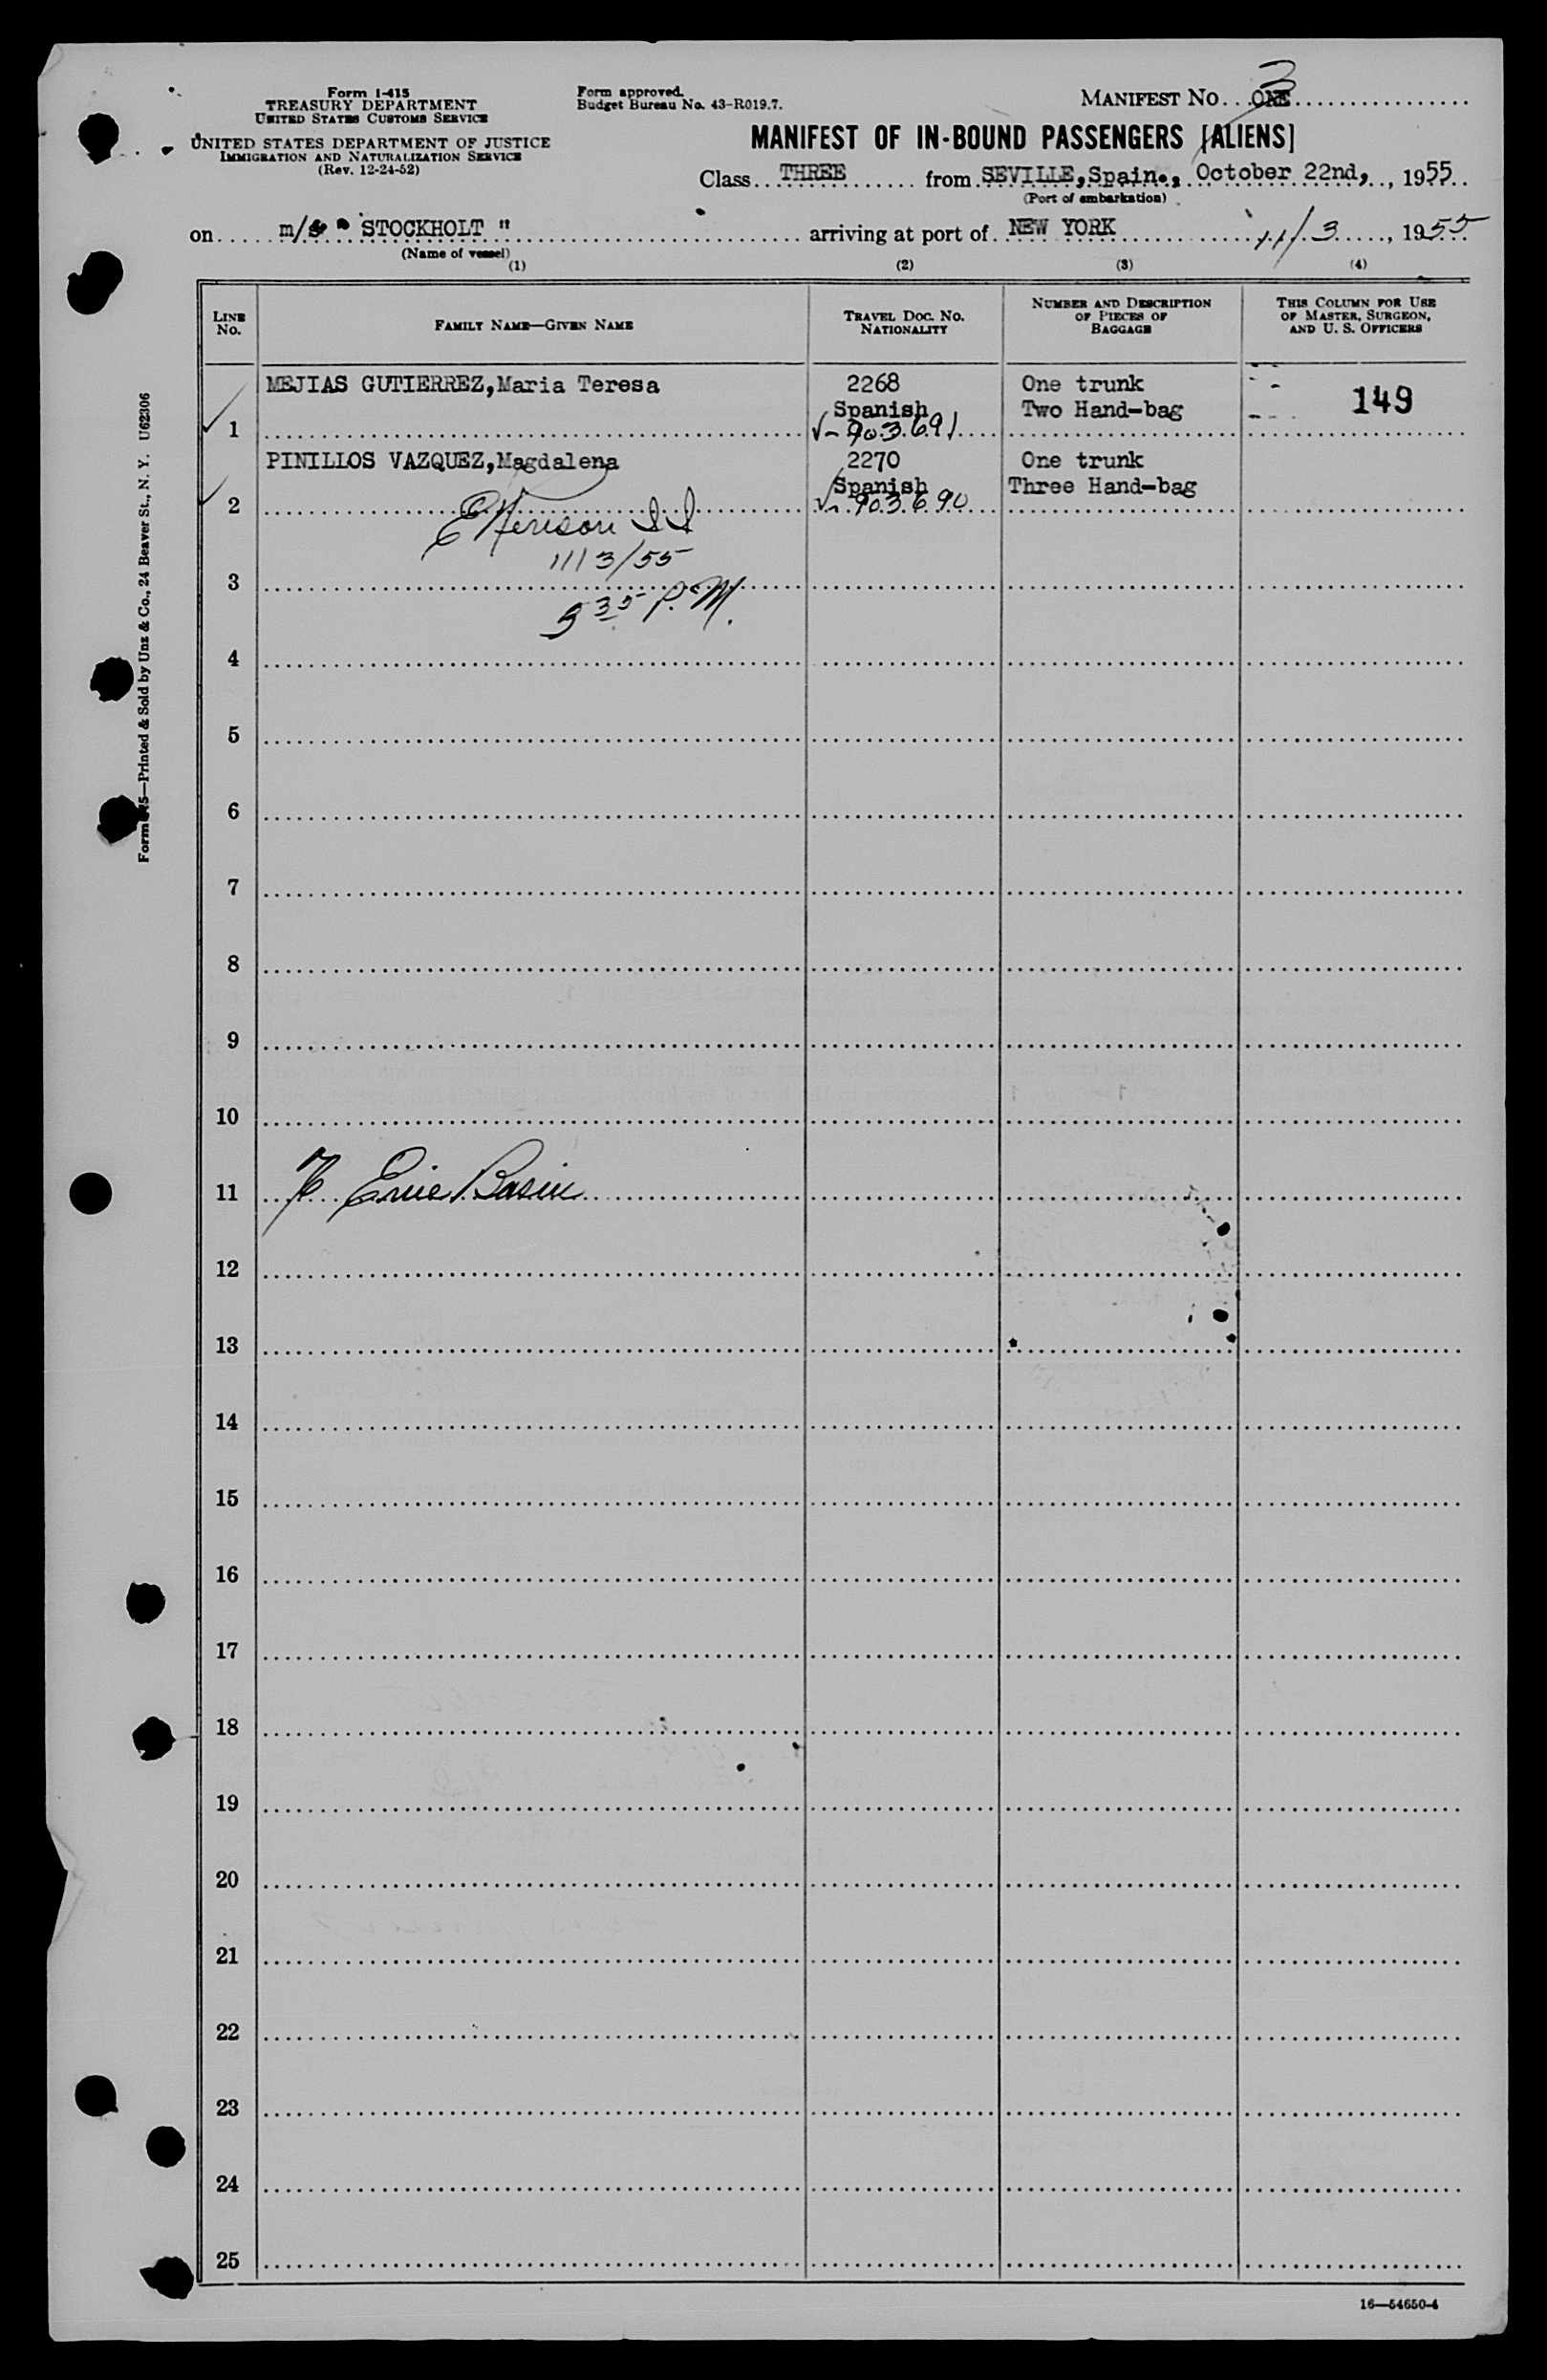 Form I-415
TREASURY DEPARTMENT
UNITED STATES CUSTOMS SERVICE
UNITED STATES DEPARTMENT OF JUSTICE
IMMIGRATION AND NATURALIZATION SERVICE
(Rev. 12-24-52)
Form approved.
Budget Bureau No. 43-R019.7.
MANIFEST NO. ONE 3
MANIFEST OF IN-BOUND PASSENGERS [ALIENS]
Class THREE from SEVILLE, Spain., October 22nd, , 1955
(Port of embarkation)
on m/s " STOCKHOLT " arriving at port of NEW YORK 11/3, 1955
(Name of vessel)
(1) (2) (3) (4)
LINE NO.
FAMILY NAME—GIVEN NAME
TRAVEL DOC. NO. NATIONALITY
NUMBER AND DESCRIPTION OF PIECES OF BAGGAGE
THIS COLUMN FOR USE OF MASTER, SURGEON, AND U. S. OFFICERS
MEJIAS GUTIERREZ,Maria Teresa 2268 One trunk
Spanish Two Hand-bag 149
1 √-903691
PINILLOS VAZQUEZ,Magdalena 2270 One trunk
Spanish Three Hand-bag
2 903690
11/3/55
3
5 35 P.M.
4
5
6
7
8
9
10
11 Erie Basin
12
13
14
15
16
17
18
19
20
21
22
23
24
25
16—54650-4
—Printed & Sold by Unz & Co., 24 Beaver St., N. Y. U62306